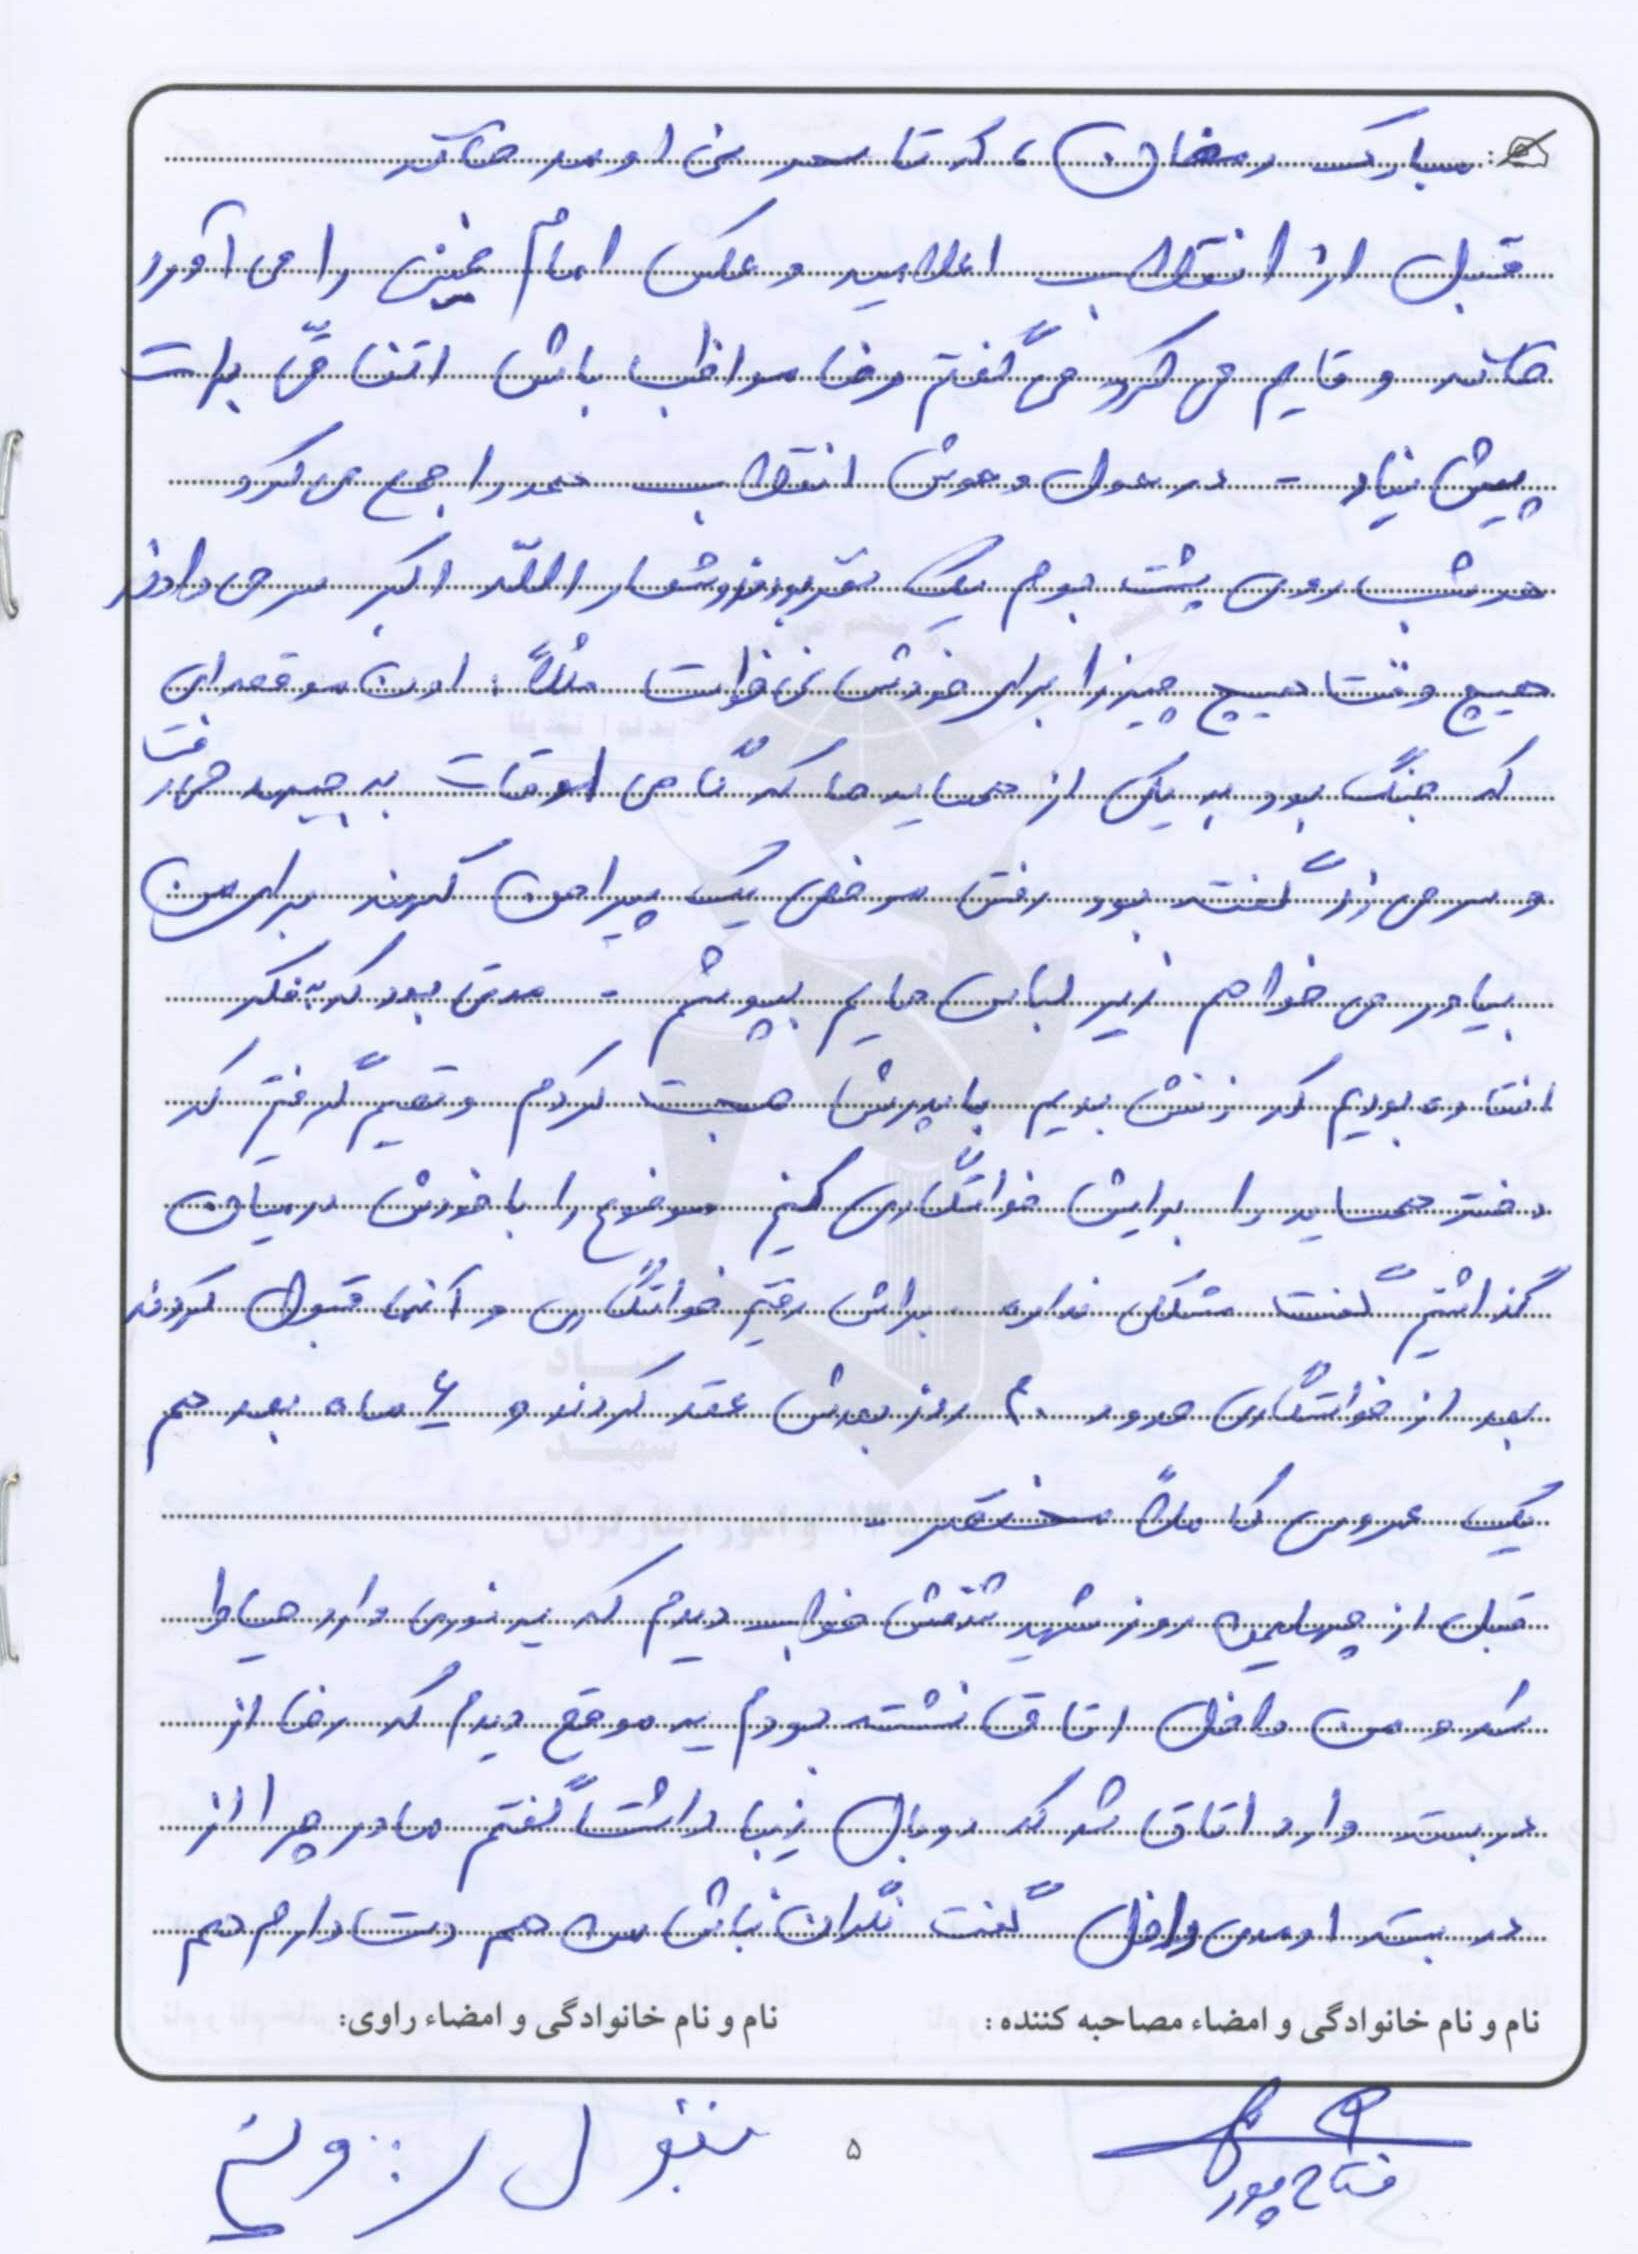 مبارک رمضان، که تا سحر نمی اومد خانه
قبل از انقلاب اعلامیه و عکس امام خمینی را می آورد
خانه و قایم می کرد می گفتم رضا مواظب باش اتفاقی برات
پیش نیاد - در حول و حوش انقلاب همه را جمع می کرد
هر شب روی پشت بوم یک نفر بودند و شعار الله اکبر سر می دادند
هیچ وقت هیچ چیز را برای خودش نمی خواست مثلاً: اون موقعه ای
که جنگ بود به یکی از همسایه ها که گاهی اوقات به جبهه می رفت
و سر می زد گفته بود رفتی مرخصی یک پیراهن گرند برای من
بیاور می خواهم زیر لباس هایم بپوشم - مدتی بود که به فکر
افتاده بودیم که زنش بدیم با پدرش صحبت کردم و تصمیم گرفتیم که
دختر همسایه را برایش خواستگاری کنیم موضوع را با خودش در میان
گذاشتیم گفت مشکلی نداره. براش رفتیم خواستگاری و آنها قبول کردند
بعد از خواستگاری حدود ۲۰ روز بعدش عقد کردند و ۶ ماه بعد هم
یک عروسی کاملاً مختصر -
قبل از چهلیمن روز شهید شدنش خواب دیدم که یه نوری وارد حیاط
شد و من داخل اتاق نشسته بودم یه موقع دیدم که رضا از
در بسته وارد اتاق شد که دو بال زیبا داشت گفتم مادر چرا از
در بسته اومدی داخل گفت نگران نباش من هم دست دارم هم
نام و نام خانوادگی و امضاء مصاحبه کننده: نام و نام خانوادگی و امضاء راوی:
فتاح پور
۵